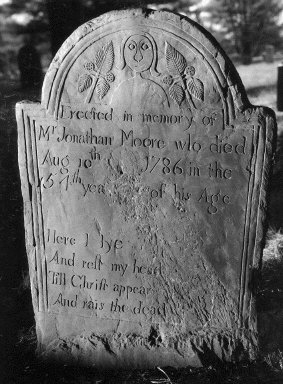 Erected in memory of
Mr Jonathan Moore who died
Aug 10th 1786 in the
57th year of his Age
Here I lye
And rest my head
Till Christ appear
And rais the dead